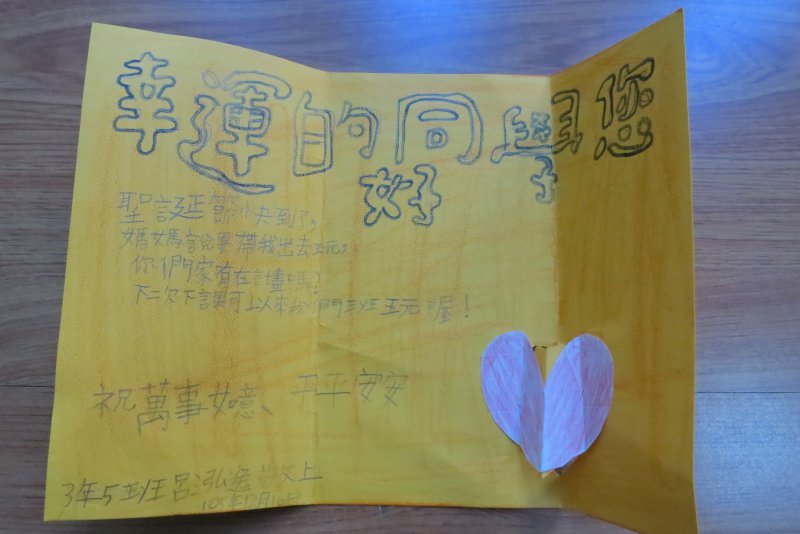 幸運的同學您
好
聖誕節快到了,
媽媽說要帶我出去玩,
你們家有在計畫嗎?
下次下課可以來我們班玩喔!
祝萬事如意、平平安安
3年5班呂泓逸敬上